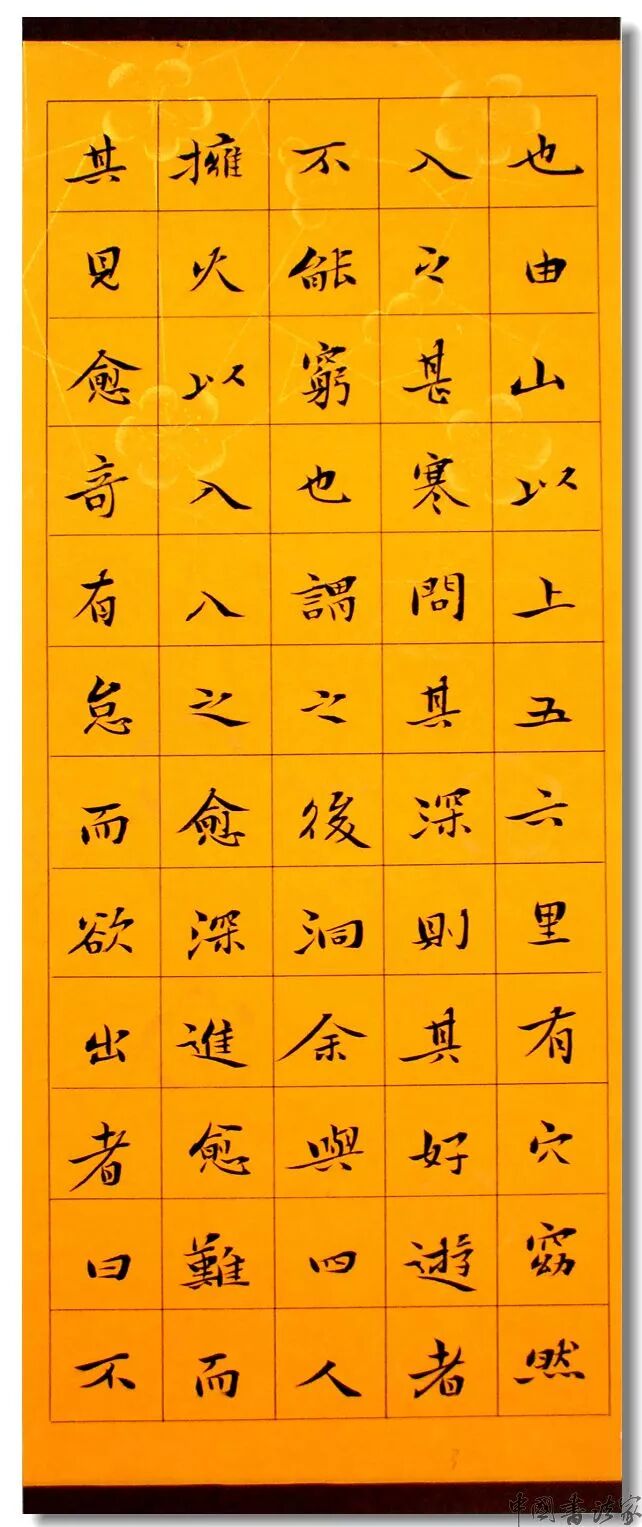 也由山以上五六里有穴窈然
入之甚寒問其深則其好遊者
不能窮也謂之後洞余與四人
擁火以入入之愈深進愈難而
其見愈奇有怠而欲出者曰不
中國書法家